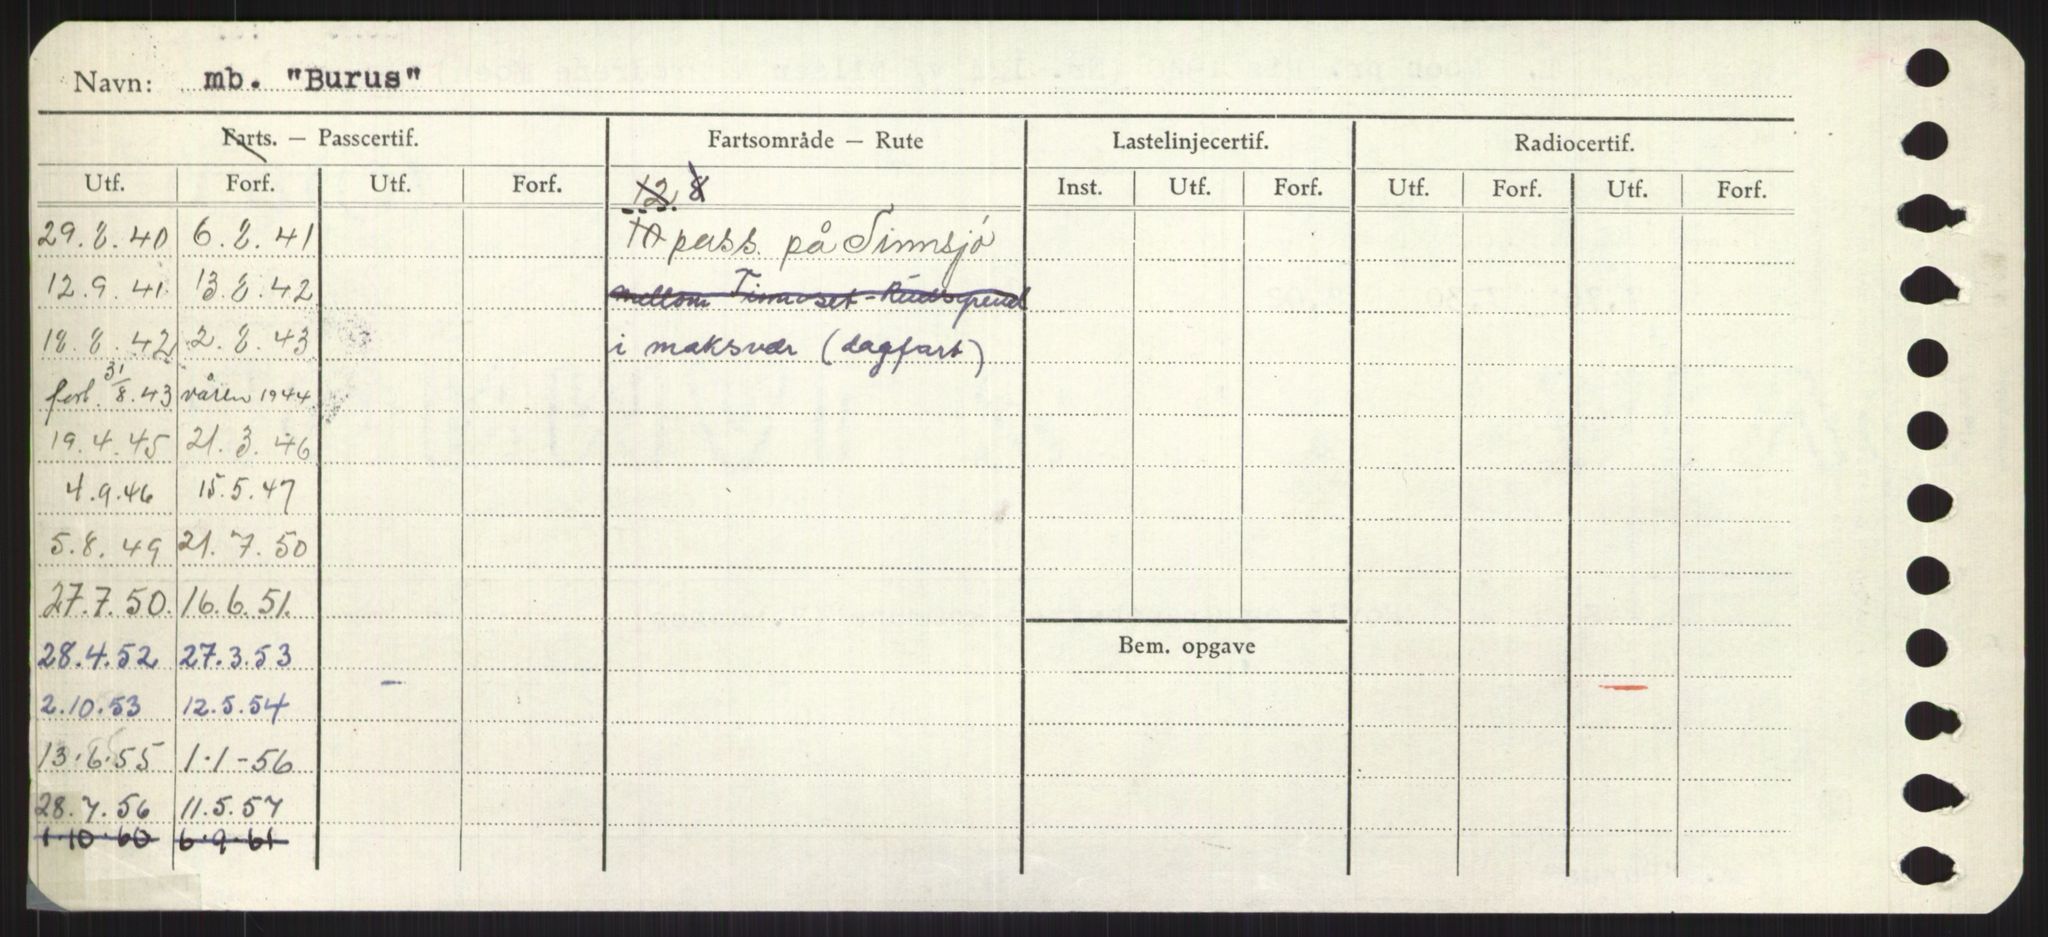 Navn: mb. "Burus"
Farts. — Passcertif. Fartsområde — Rute Lastelinjecertif. Radiocertif.
Utf. Forf. Utf. Forf. 12 8 Inst. Utf. Forf. Utf. Forf. Utf. Forf.
29.8.40 6.8.41 10 pass. på Tinnsjø
12.9.41 13.8.42 mellom Tinnoset-
18.8.42 2.8.43 i maksvær (dagfart)
forl. 31/8.43 våren 1944
19.4.45 21.3.46
4.9.46 15.5.47
5.8.49 21.7.50
27.7.50. 16.6.51.
28.4.52 27.3.53 Bem. opgave
2.10.53 12.5.54
13.6.55 1.1-56
28.7.56 11.5.57
1.10.60 6.9.61